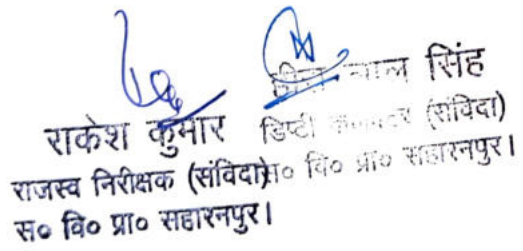 राकेश कुमार
राजस्व निरीक्षक (संविदा)
स० वि० प्रा० सहारनपुर।
सिंह
डिप्टी (संविदा)
स० वि० प्रा० सहारनपुर।